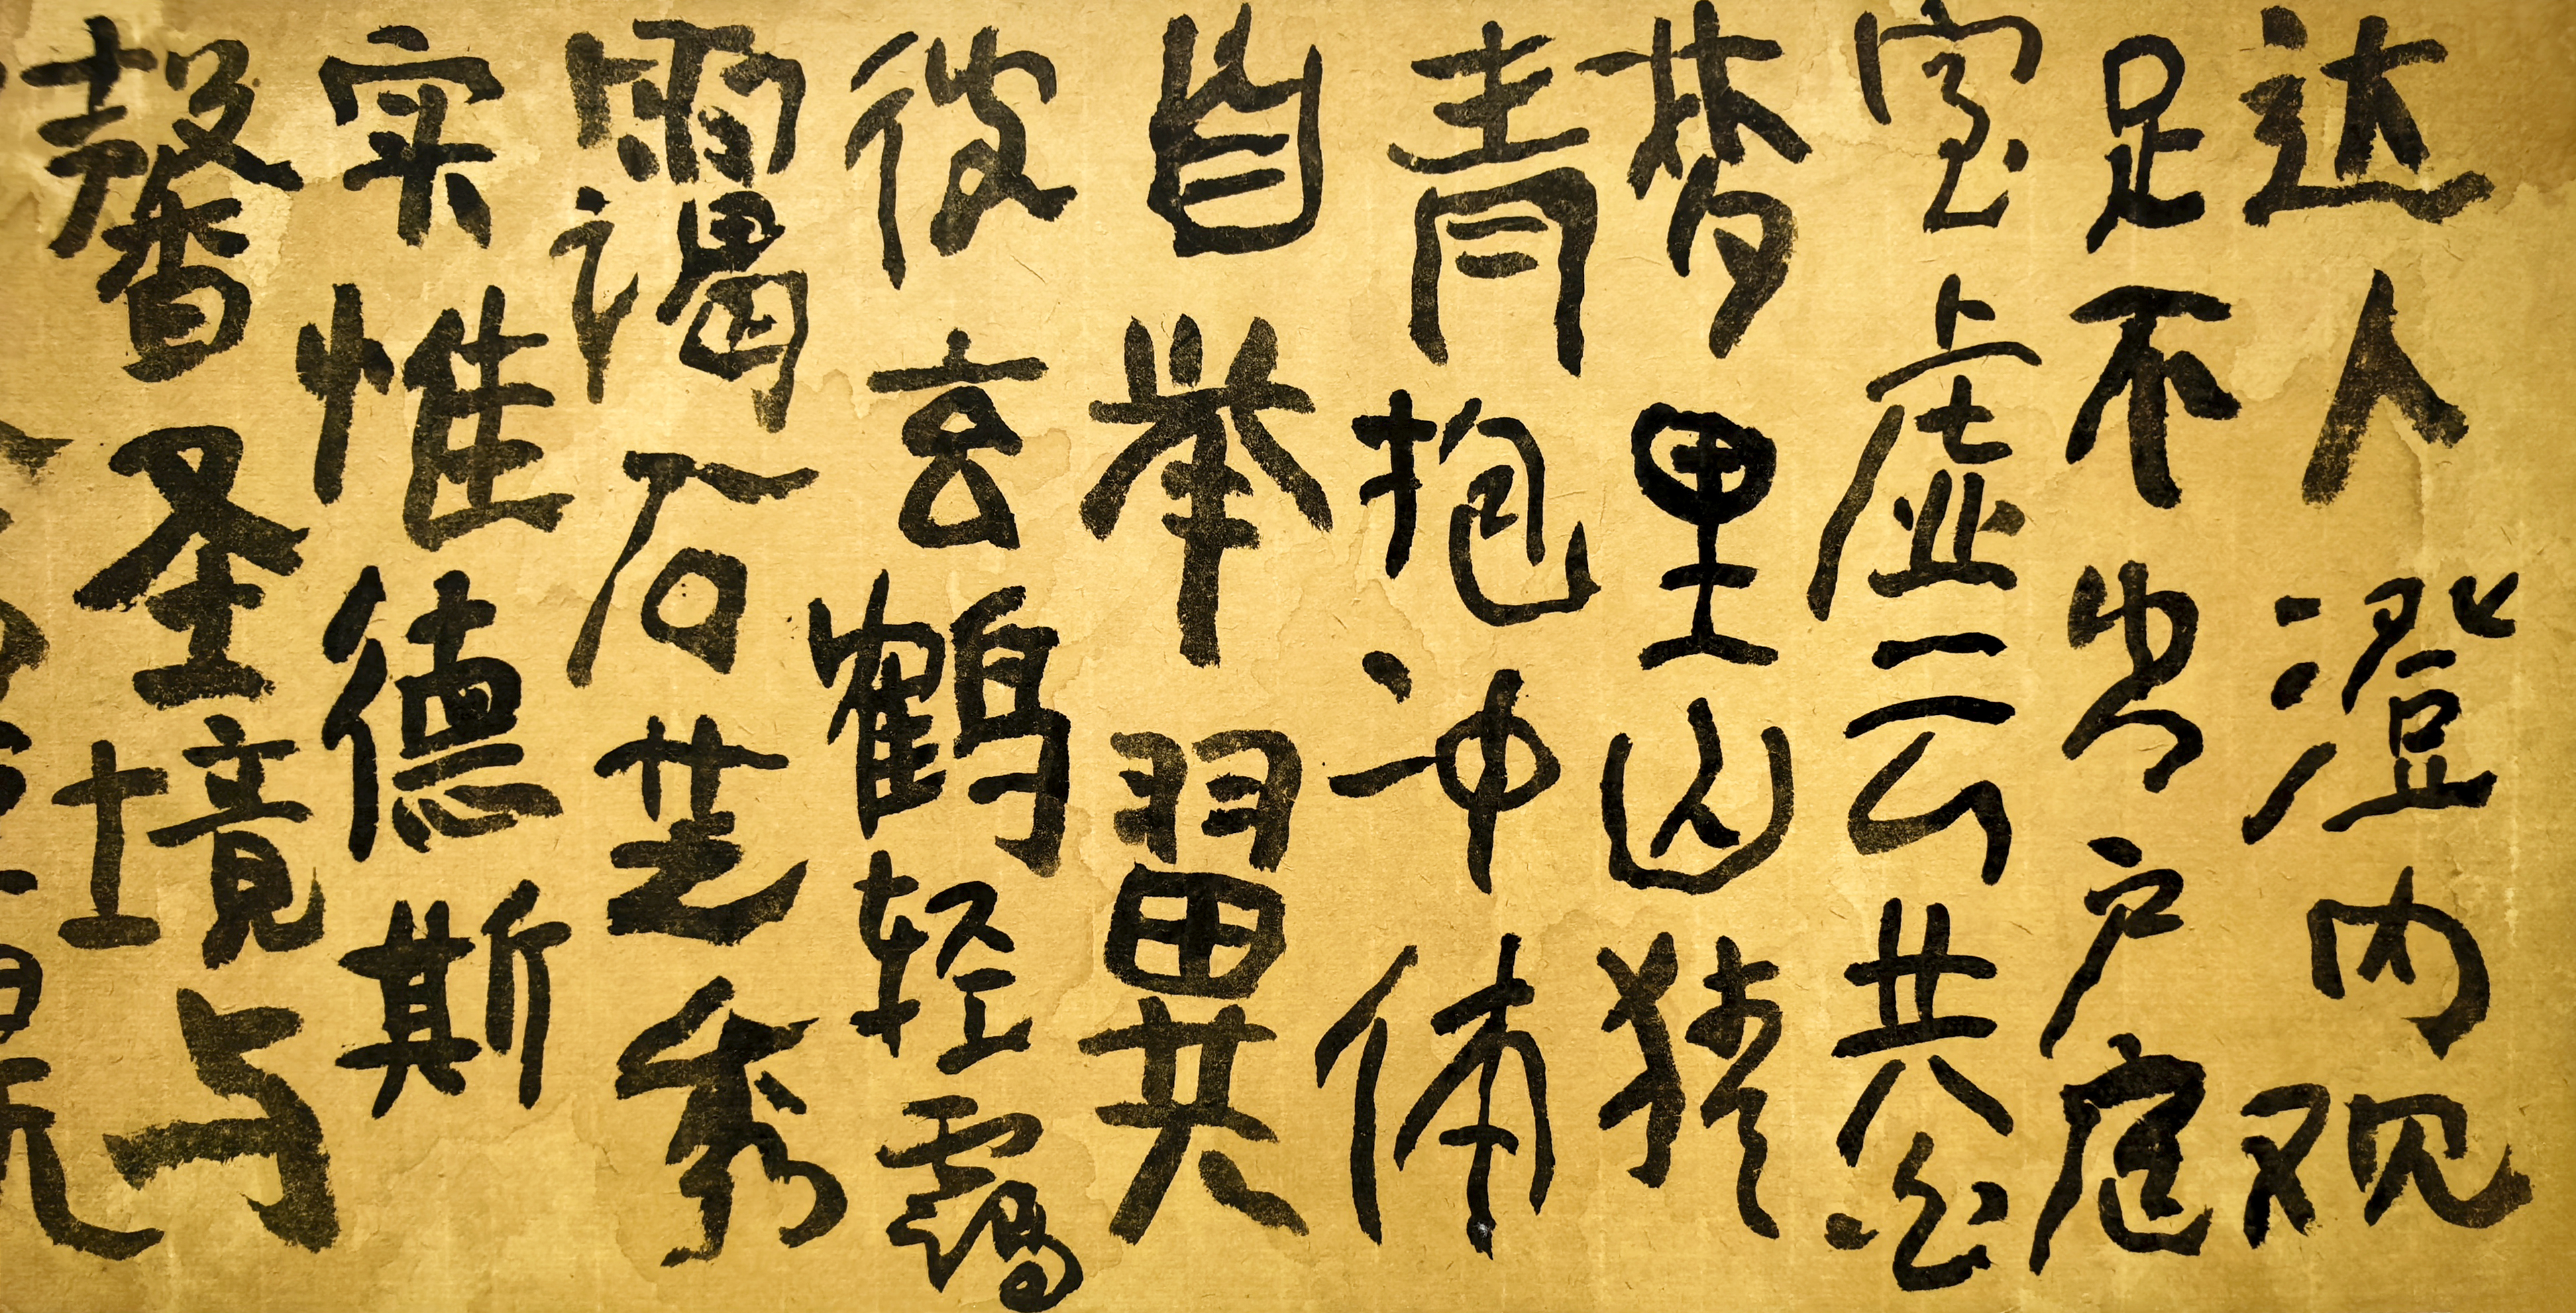 达人澄内观
足不出户庭
室虚云共
梦里山犹
青抱冲体
自举翼
彼玄鹤轻霭
霭石芝秀
实惟德斯
馨圣境与